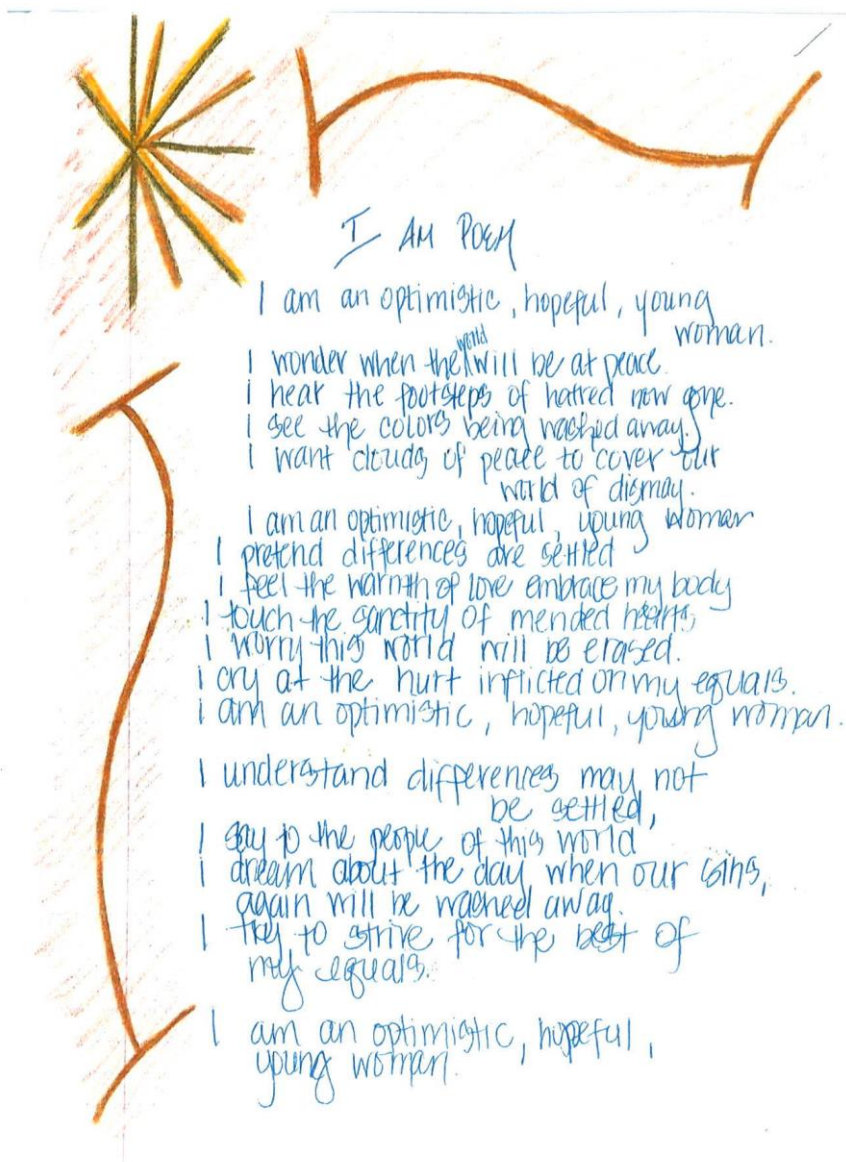 I AM POEM
I am an optimistic, hopeful, young
woman.
I wonder when the world will be at peace.
I hear the footsteps of hatred now gone.
I see the colors being washed away.
I want clouds of peace to cover our
world of dismay.
I am an optimistic, hopeful, young woman
I pretend differences are settled
I feel the warmth of love embrace my body
I touch the sanctity of mended hearts,
I worry this world will be erased.
I cry at the hurt inflicted on my equals.
I am an optimistic, hopeful, young woman.
I understand differences may not
be settled,
I say to the people of this world
I dream about the day when our sins,
again will be washed away.
I try to strive for the best of
my equals.
I am an optimistic, hopeful,
young woman.